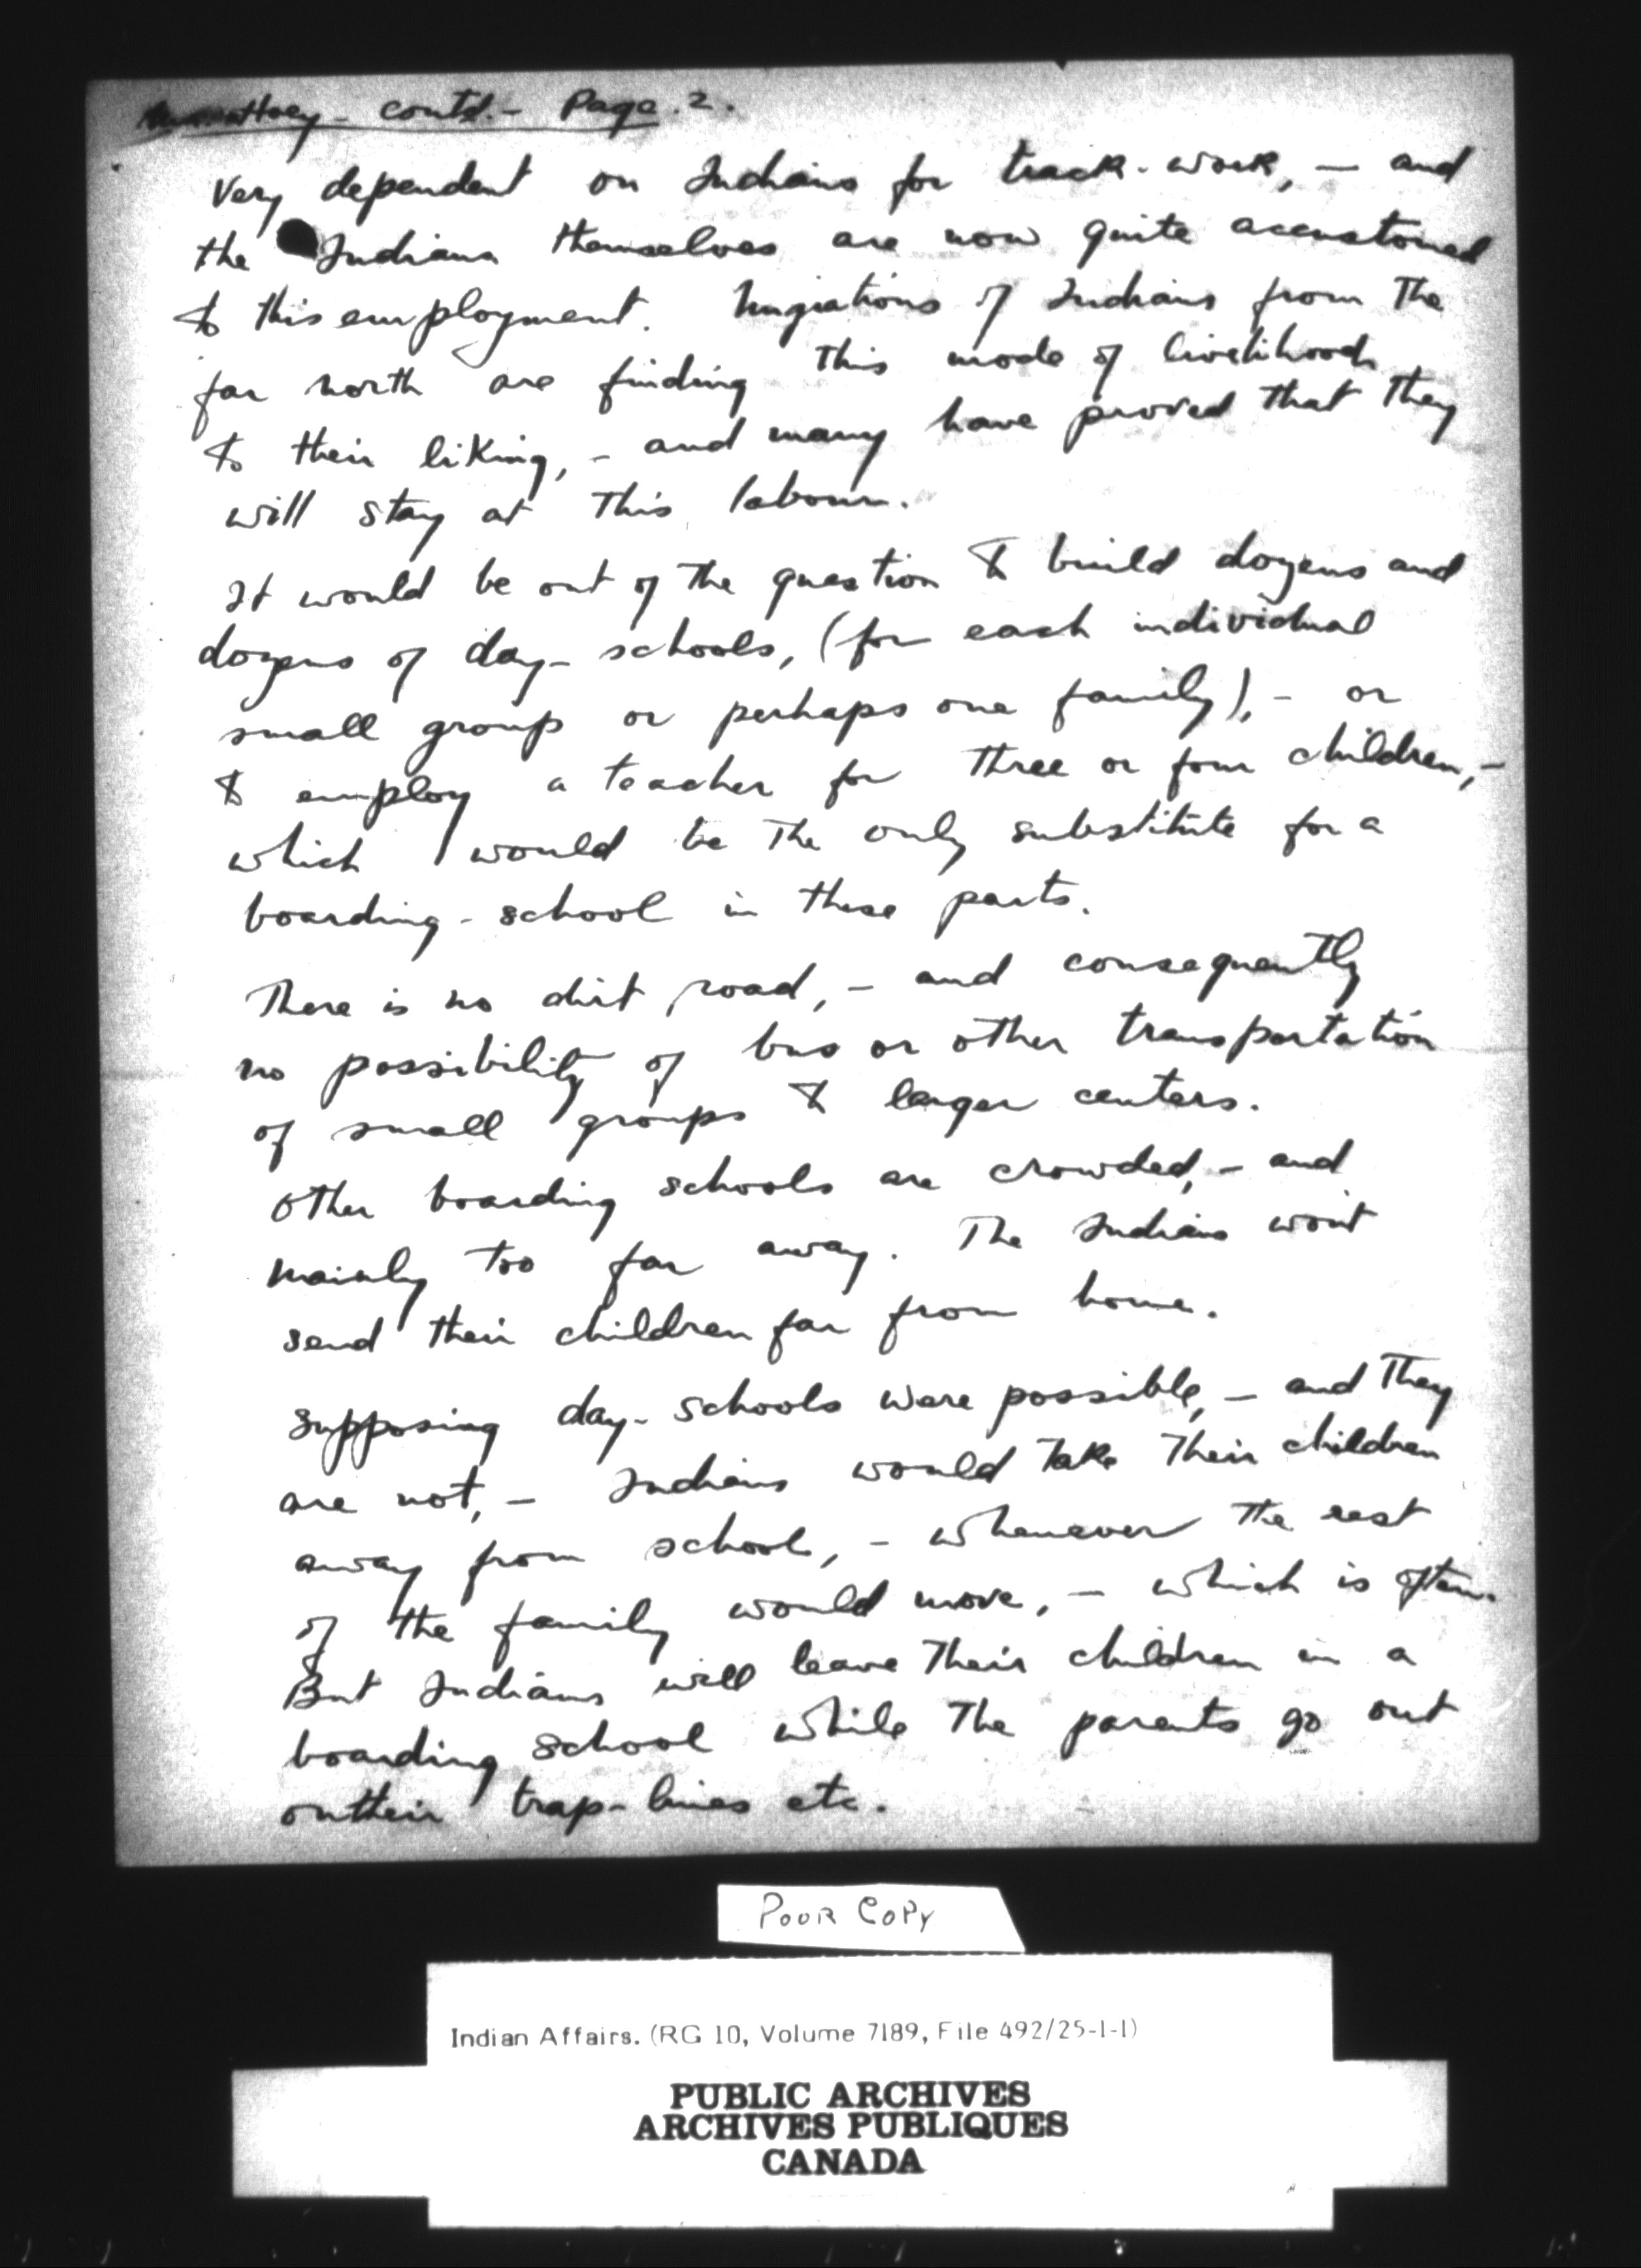 Hoey - contd. - Page. 2.
Very dependent on Indians for track-work, - and
the Indians themselves are now quite accustomed
to this employment. Migrations of Indians from the
far north are finding this mode of livelihood
to their liking, - and many have proved that they
will stay at this labour.
It would be out of the question to build dozens and
dozens of day-schools, (for each individual
small group or perhaps one family), - or
to employ a teacher for three or four children, -
which would be the only substitute for a
boarding-school in these parts.
There is no dirt road, - and consequently
no possibility of bus or other transportation
of small groups to larger centers.
Other boarding schools are crowded, - and
mainly too far away. The Indians won't
send their children far from home.
Supposing day-schools were possible, - and they
are not, - Indians would take their children
away from school, - whenever the rest
of the family would move, - which is often.
But Indians will leave their children in a
boarding school while the parents go out
on their trap-lines etc.
POOR COPY
Indian Affairs. (RG 10, Volume 7189, File 492/25-1-1)
PUBLIC ARCHIVES
ARCHIVES PUBLIQUES
CANADA